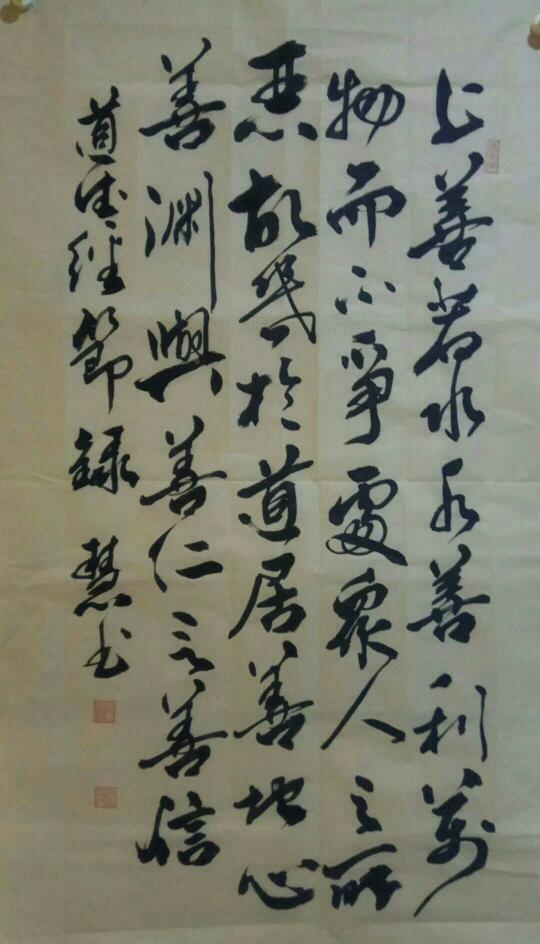 上善若水水善利萬
物而不爭處衆人之所
惡故幾於道居善地心
善淵與善仁言善信
道德經節録 慧书